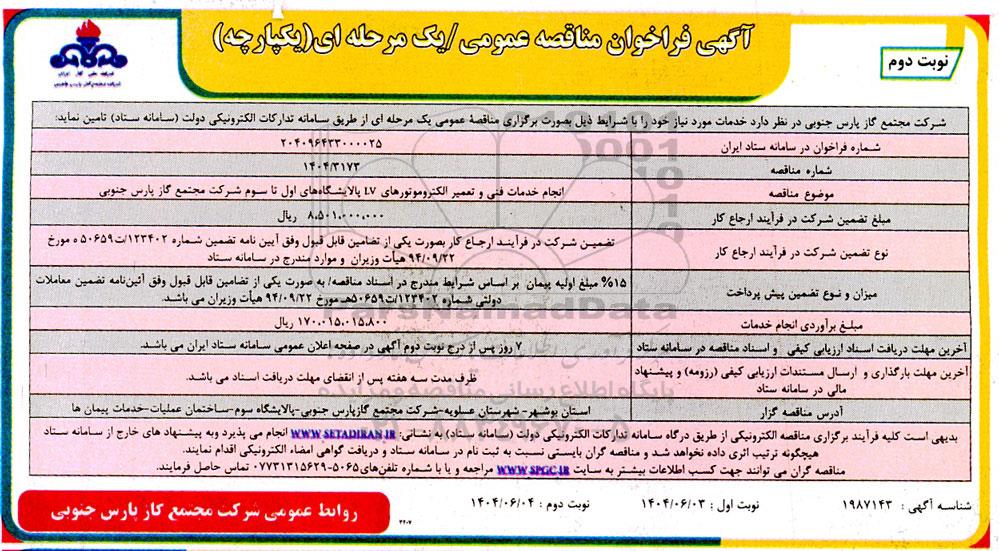 آگهی فراخوان مناقصه عمومی /یک مرحله ای(یکپارچه)
نوبت دوم
شرکت ملی گاز ایران
شرکت مجتمع گاز پارس جنوبی
شرکت مجتمع گاز پارس جنوبی در نظر دارد خدمات مورد نیاز خود را با شرایط ذیل بصورت برگزاری مناقصهٔ عمومی یک مرحله ای از طریق سامانه تدارکات الکترونیکی دولت (سامانه ستاد) تامین نماید:
شماره فراخوان در سامانه ستاد ایران ۲۰۴۰۹۶۴۳۳۰۰۰۰۲۵
شماره مناقصه ۱۴۰۴/۳۱۷۳
موضوع مناقصه انجام خدمات فنی و تعمیر الکتروموتورهای LV پالایشگاه‌های اول تا سوم شرکت مجتمع گاز پارس جنوبی
مبلغ تضمین شرکت در فرآیند ارجاع کار ۸،۵۰۱،۰۰۰،۰۰۰ ریال
نوع تضمین شرکت در فرآیند ارجاع کار تضمین شرکت در فرآیند ارجاع کار بصورت یکی از تضامین قابل قبول وفق آیین نامه تضمین شماره ۱۲۳۴۰۲/ت۵۰۶۵۹ ه مورخ
۹۴/۰۹/۲۲ هیأت وزیران و موارد مندرج در سامانه ستاد
میزان و نوع تضمین پیش پرداخت ۱۵% مبلغ اولیه پیمان بر اساس شرایط مندرج در اسناد مناقصه/ به صورت یکی از تضامین قابل قبول وفق آئین‌نامه تضمین معاملات
دولتی شماره ۱۲۳۴۰۲/ت۵۰۶۵۹هـ مورخ ۹۴/۰۹/۲۲ هیأت وزیران می باشد.
مبلغ برآوردی انجام خدمات ۱۷۰،۰۱۵،۰۱۵،۸۰۰ ریال
آخرین مهلت دریافت اسناد ارزیابی کیفی و اسناد مناقصه در سامانه ستاد ۷ روز پس از درج نوبت دوم آگهی در صفحه اعلان عمومی سامانه ستاد ایران می باشد.
آخرین مهلت بارگذاری و ارسال مستندات ارزیابی کیفی (رزومه) و پیشنهاد
مالی در سامانه ستاد ظرف مدت سه هفته پس از انقضای مهلت دریافت اسناد می باشد.
آدرس مناقصه گزار استان بوشهر- شهرستان عسلویه-شرکت مجتمع گازپارس جنوبی-پالایشگاه سوم-ساختمان عملیات-خدمات پیمان ها
بدیهی است کلیه فرآیند برگزاری مناقصه الکترونیکی از طریق درگاه سامانه تدارکات الکترونیکی دولت (سامانه ستاد) به نشانی: WWW.SETADIRAN.IR انجام می پذیرد وبه پیشنهاد های خارج از سامانه ستاد
هیچگونه ترتیب اثری داده نخواهد شد و مناقصه گران بایستی نسبت به ثبت نام در سامانه ستاد و دریافت گواهی امضاء الکترونیکی اقدام نمایند.
مناقصه گران می توانند جهت کسب اطلاعات بیشتر به سایت WWW.SPGC.IR مراجعه و یا با شماره تلفن‌های ۵۰۶۵-۰۷۷۳۱۳۱۵۶۲۹ تماس حاصل فرمایند.
شناسه آگهی : ۱۹۸۷۱۴۳ نوبت اول : ۱۴۰۴/۰۶/۰۳ نوبت دوم : ۱۴۰۴/۰۶/۰۴
۳۲۰۷
روابط عمومی شرکت مجتمع گاز پارس جنوبی
ParsNamadData
پایگاه اطلاع رسانی مناقصه و مزایده